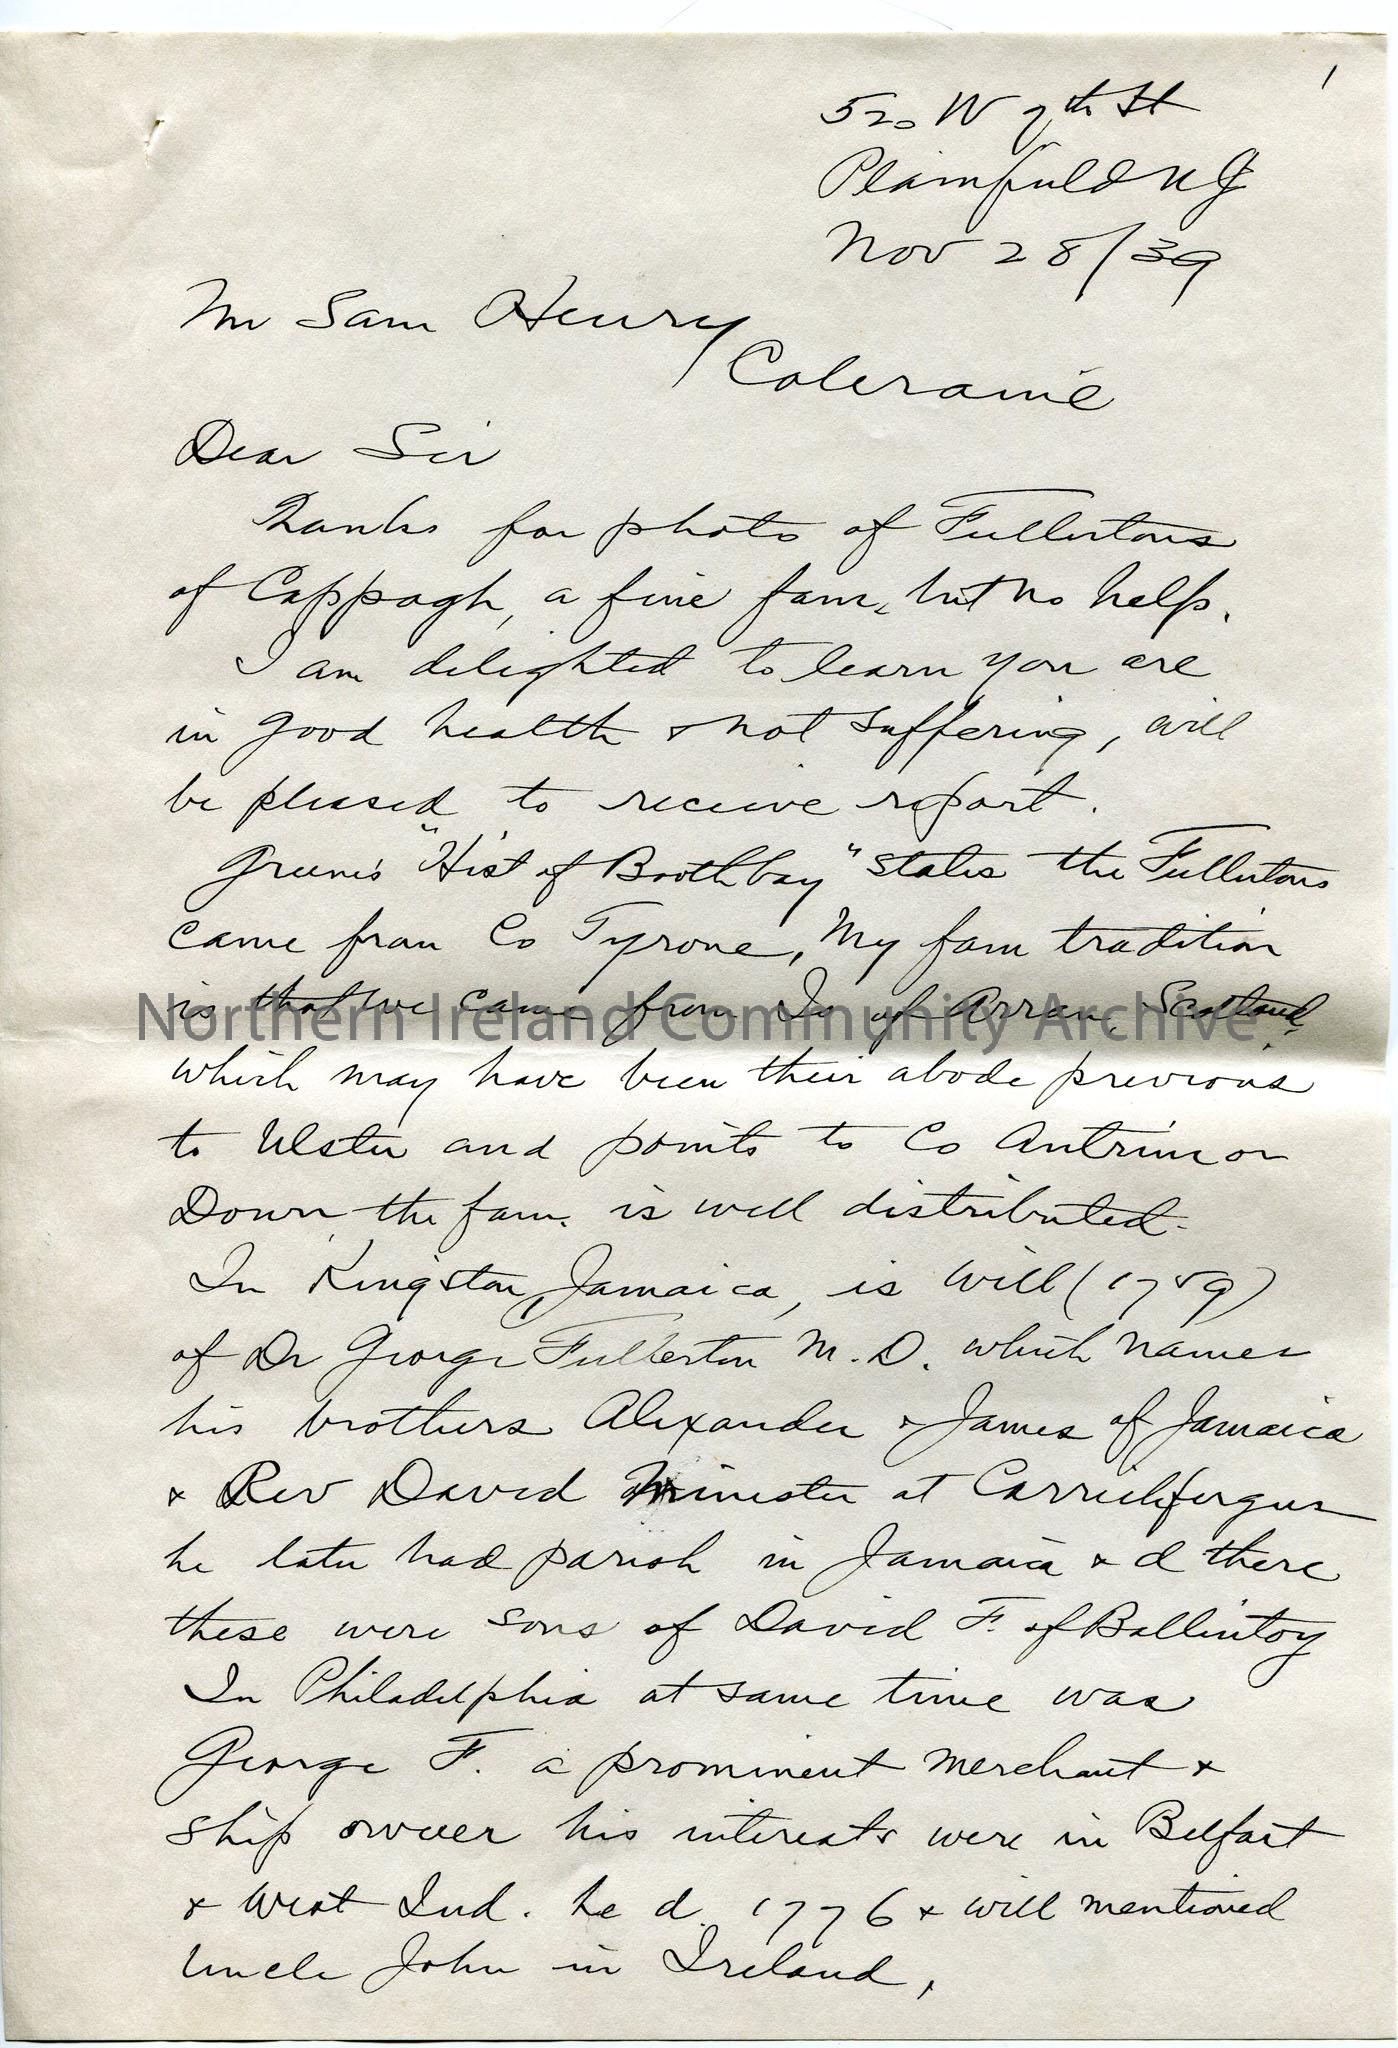 1
520 W 7th St
Plainfield N J
Nov 28/39
Mr Sam Henry
Coleraine
Dear Sir
Thanks for photo of Fullertons
of Cappagh, a fine fam, but no help.
I am delighted to learn you are
in good health & not suffering, will
be pleased to receive report.
Greene's "Hist of Boothbay" states the Fullertons
came from Co Tyrone, My fam tradition
is that we came from Is of Arran, Scotland,
Northern Ireland Community Archive
which may have been their abode previous
to Ulster and points to Co Antrim or
Down, the fam. is well distributed.
In Kingston, Jamaica, is will (1759)
of Dr George Fullerton M.D. which names
his brothers Alexander & James of Jamaica
& Rev David Minister at Carrickfergus
he later had parish in Jamaica & d there
these were sons of David F. of Ballintoy
In Philadelphia at same time was
George F. a prominent merchant &
ship owner his interests were in Belfast
& West Ind. he d. 1776 & will mentioned
Uncle John in Ireland,